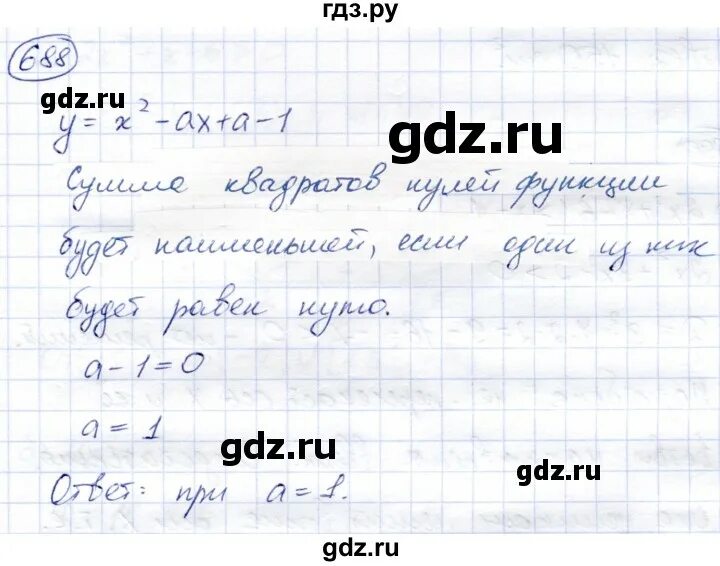 гдз.ру
688
gdz.ru
y = x² - ax + a - 1
gdz.ru
Сумма квадратов нулей функции
будет наименьшей, если один из них
будет равен нулю.
a - 1 = 0
a = 1
gdz.ru
gdz.ru
Ответ: при a = 1.
gdz.ru